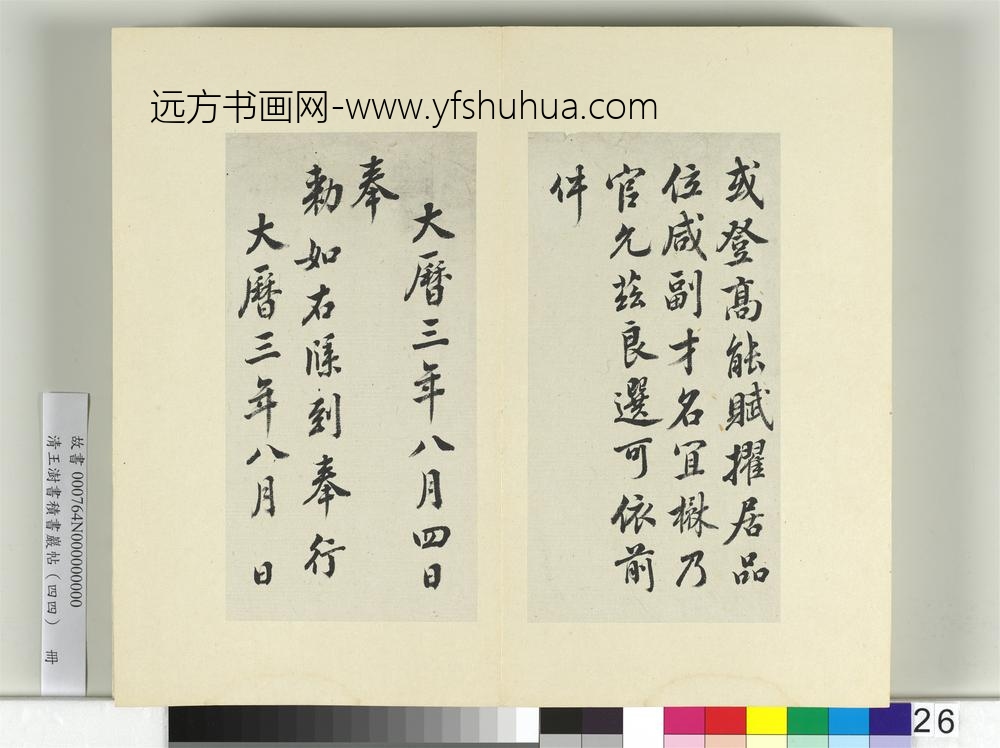 远方书画网-www.yfshuhua.com
或登高能賦擢居品
位咸副才名宜楙乃
官允茲良選可依前
件
大曆三年八月四日
奉
勑如右牒到奉行
大曆三年八月 日
故書 000764N000000000
清王澍書積書巖帖（四四） 冊
26